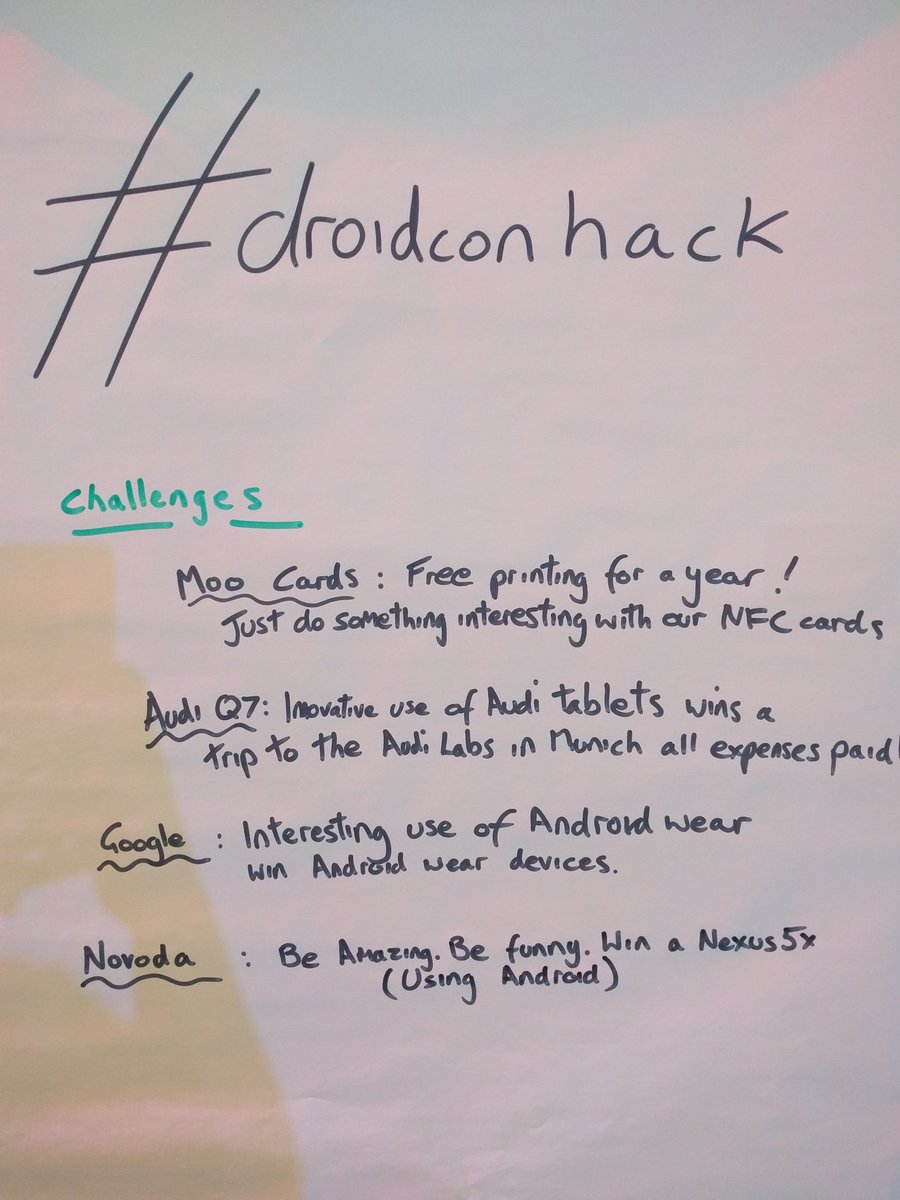 #droidcon hack
Challenges
Moo Cards : Free printing for a year!
Just do something interesting with our NFC cards
Audi Q7: Inovative use of Audi tablets wins a
trip to the Audi Labs in Munich all expenses paid!
Google : Interesting use of Android wear
win Android wear devices.
Novoda : Be Amazing. Be funny. Win a Nexus 5x
(Using Android)